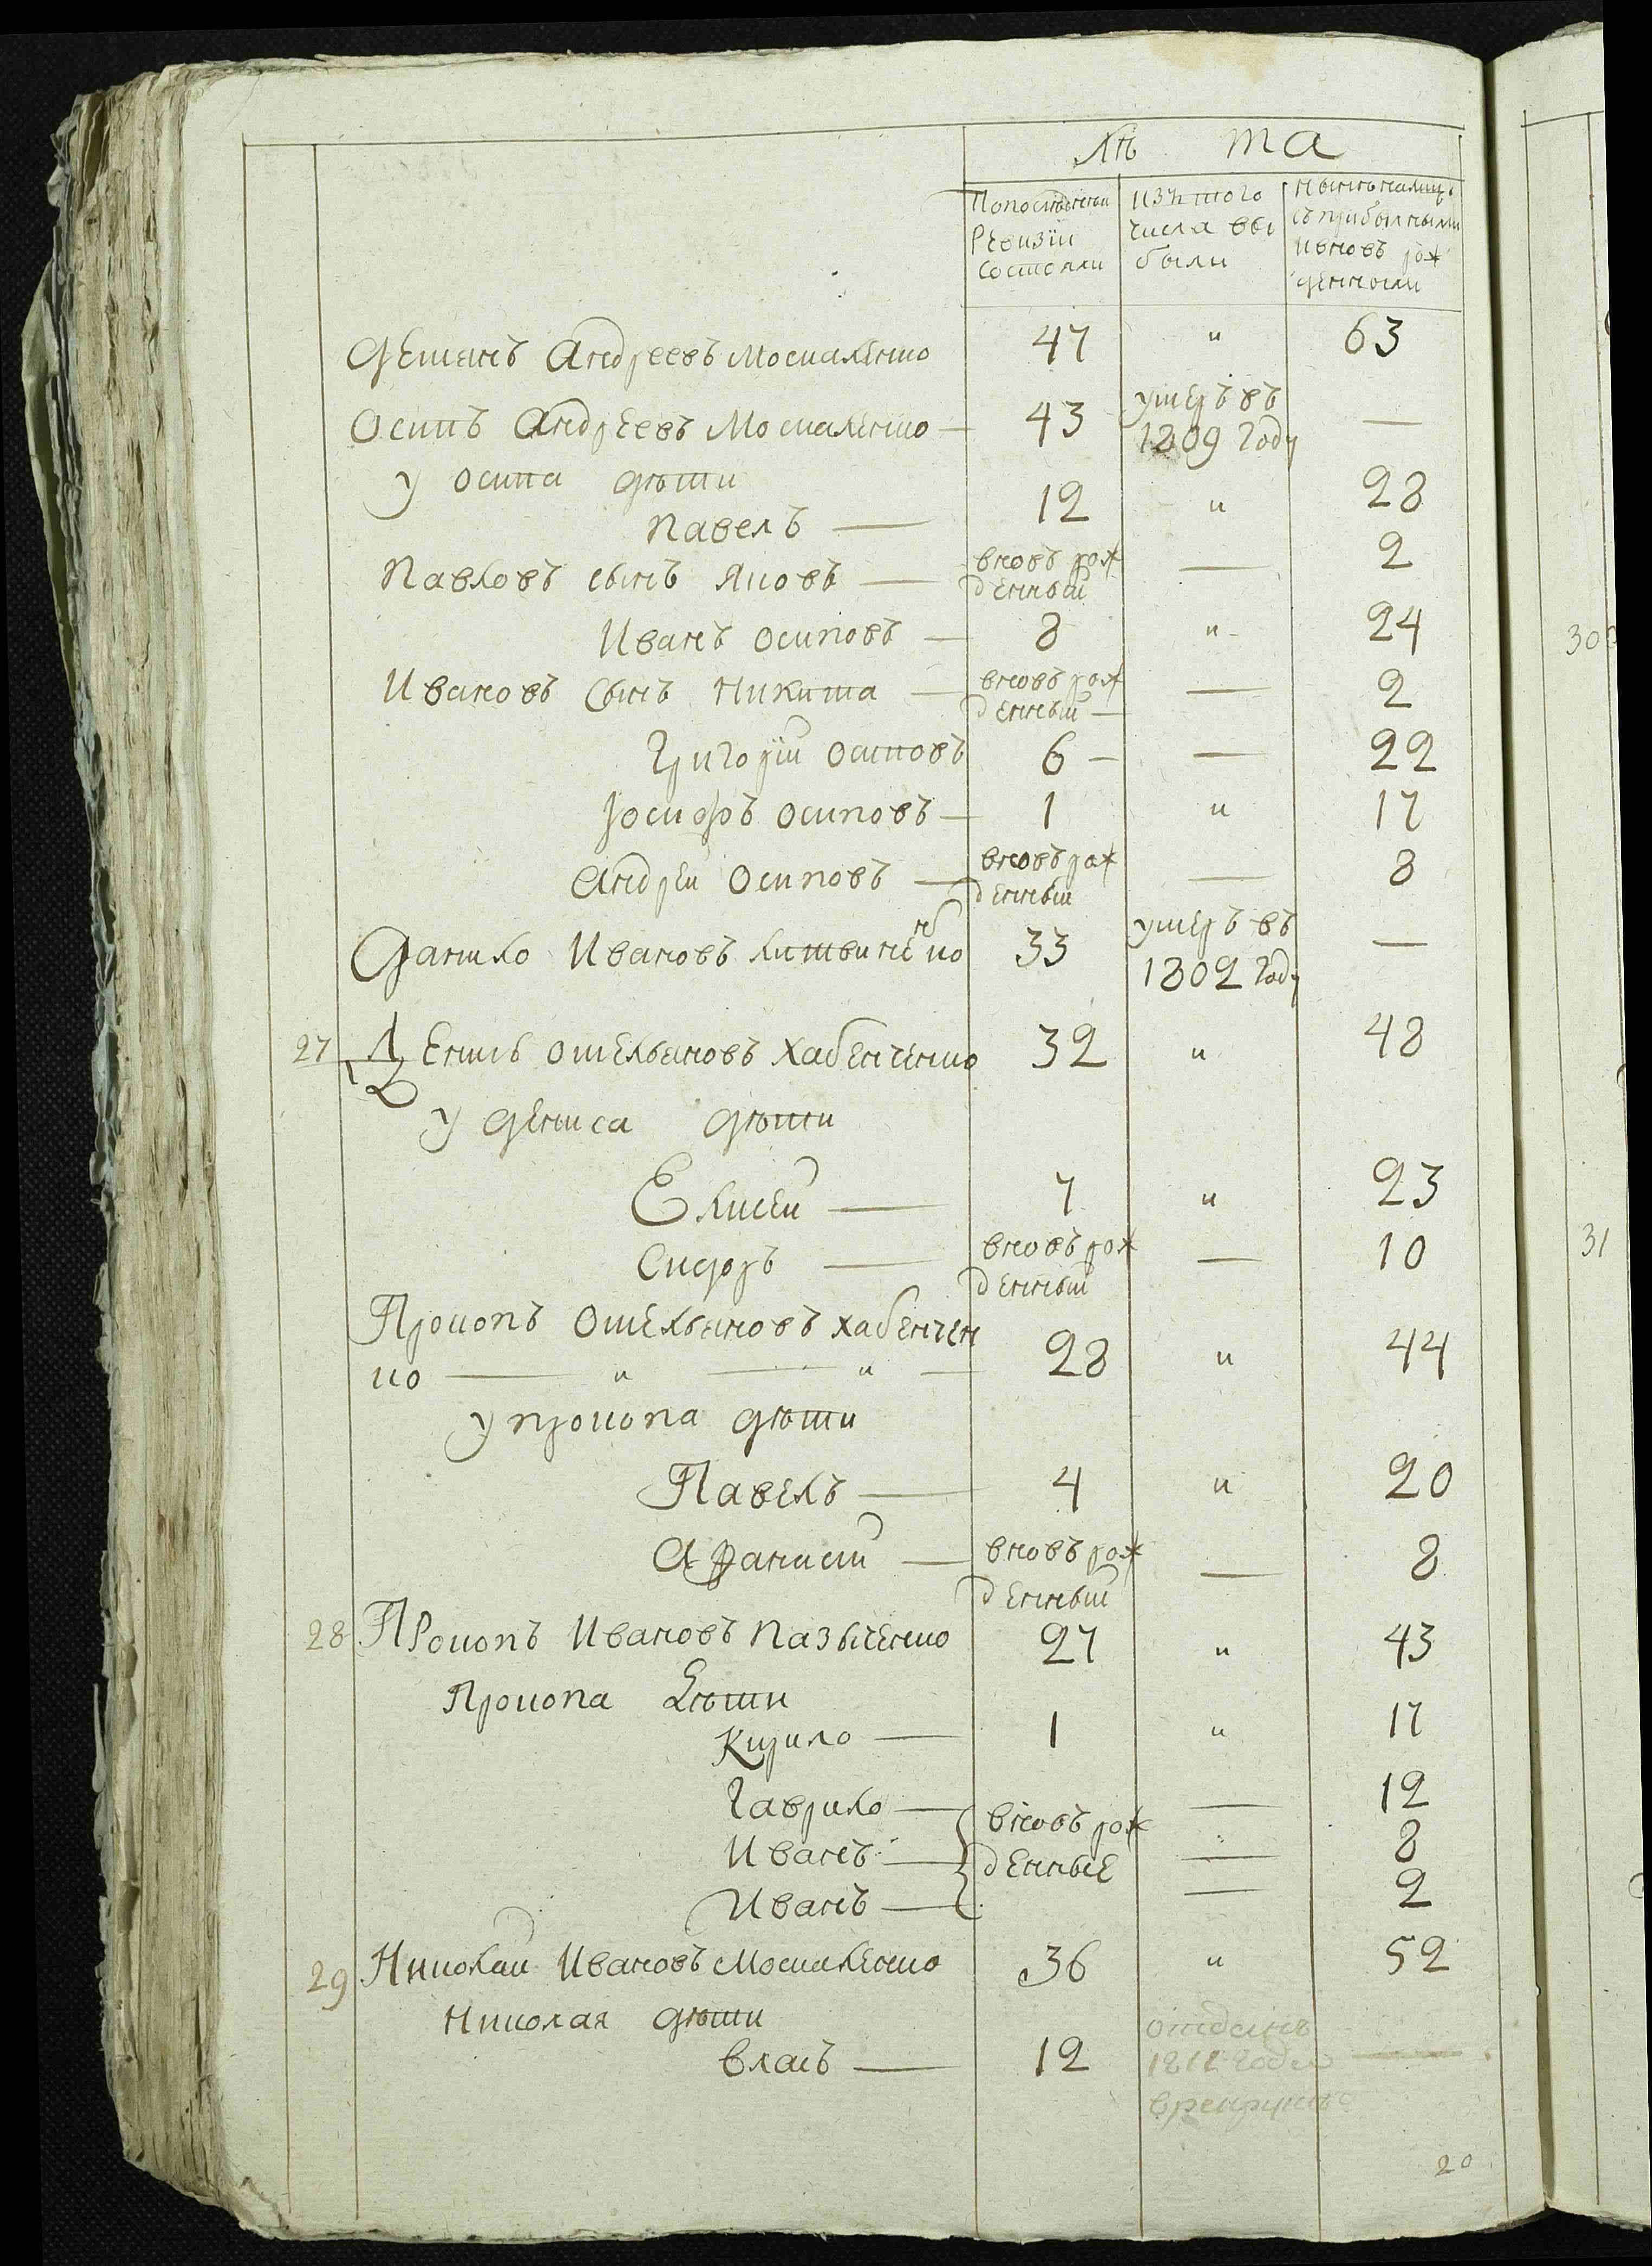 Лѣ та
По последней Ревизiи состояли
изъ того числа вы были
Нынѣ на лицо съ прибылными и вновь рож денными
Демянъ Андреевъ Москаленко 47 " 63
Осипъ Андреевъ Москаленко — 43 умеръ въ 1809 году —
у осипа дѣти
Павелъ — 12 " 28
Павловъ сынъ Яковъ — вновь рож денный — 2
Иванъ осиповъ — 8 " 24
Ивановъ сынъ Никита — вновь рож денный — — 2
Григорiй осиповъ 6 — — 22
Iосифъ осиповъ — 1 " 17
Андрей осиповъ — вновь рож денный — 8
Данило Ивановъ литвиненко 33 умеръ въ 1802 году —
27 Денисъ омельяновъ хабенченко 32 " 48
у дениса дѣти
Елисей — 7 " 23
Сидоръ — вновь рож денный — 10
Прокопъ омельяновъ хабенчен
ко — " — " — 28 " 44
у прокопа дѣти
Павелъ — 4 " 20
Афанасий — вновь рож денный — 8
28 Прокопъ Ивановъ Пазыченко 27 " 43
Прокопа дѣти
Кирило — 1 " 17
Гаврило — вновь рож — 12
Иванъ — денные — 8
Иванъ — — 2
29 Николай Ивановъ Москаленко 36 " 52
Николая дѣти
власъ — 12 отданъ 1812 года в рекруты —
20
30
31